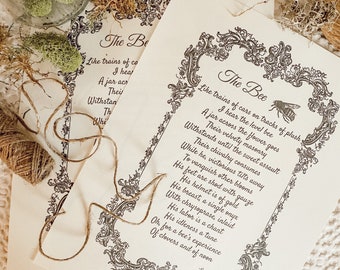 The Bee
Like trains of cars on tracks of plush
I hear
A jar across
Their
Withstand
Their
Whi
To
The Bee
Like trains of cars on tracks of plush
I hear the level bee:
A jar across the flower goes
Their velvety masonry
Withstands until the sweet assault
Their chivalry consumes
While he, victorious, tilts away
To vanquish other blooms
His feet are shod with gauze
His helmet is of gold
His breast, a single onyx
With chrysoprase, inlaid
His labor is a chant
His idleness a tune
Oh, for a bee's experience
Of clovers and of noon